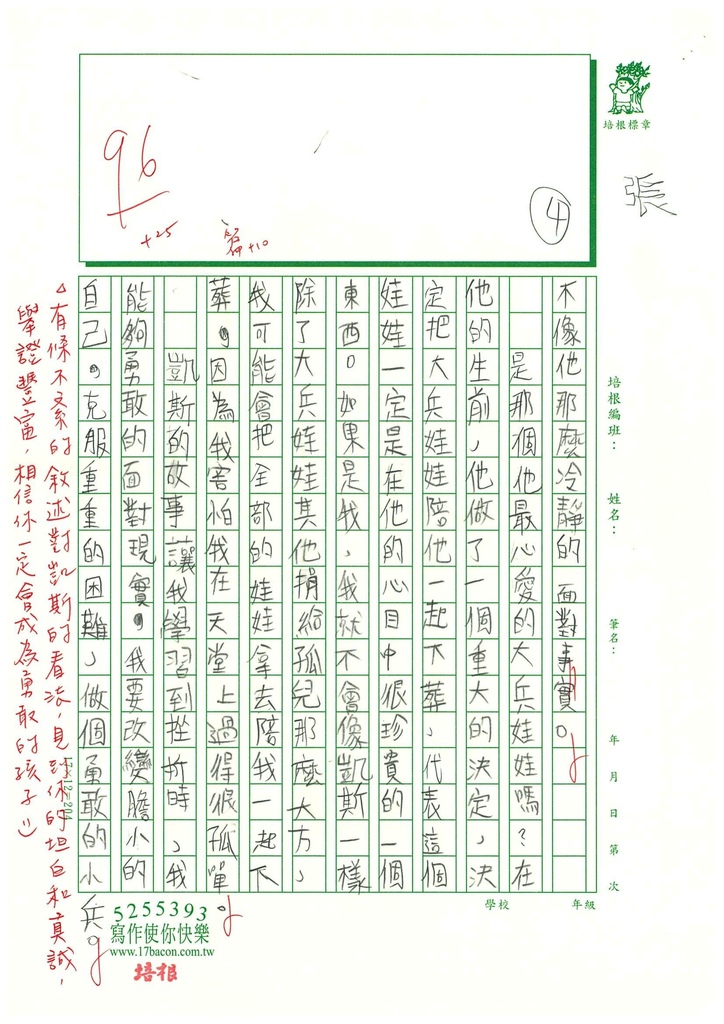 培根標章
張
④
96
+25
篇+10
培根編班：
姓名：
筆名：
年 月 日 第 次
學校 年級
不像他那麼冷靜的面對事實。
是那個他最心愛的大兵娃娃嗎？在
他的生前，他做了一個重大的決定，決
定把大兵娃娃陪他一起下葬，代表這個
娃娃一定是在他的心目中很珍貴的一個
東西。如果是我，我就不會像凱斯一樣
除了大兵娃娃其他捐給孤兒那麼大方，
我可能會把全部的娃娃拿去陪我一起下
葬，因為我害怕我在天堂上過得很孤單。
凱斯的故事讓我學習到挫折時，我
能夠勇敢的面對現實，我要改變膽小的
自己，克服重重的困難，做個勇敢的小兵。
17×12=204
△有條不紊的敘述對凱斯的看法，見到你的坦白和真誠，
舉證豐富，相信你一定會成為勇敢的孩子！！
5255393
寫作使你快樂
www.17bacon.com.tw
培根